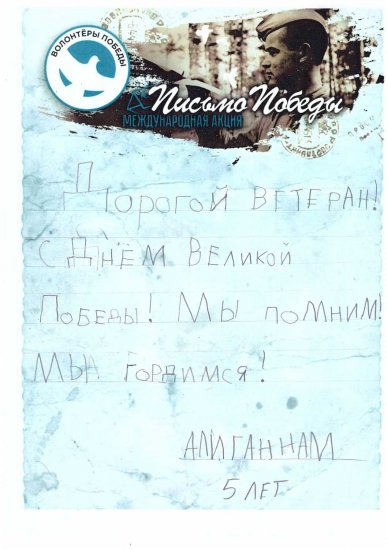 ВОЛОНТЁРЫ ПОБЕДЫ
Письмо Победы
МЕЖДУНАРОДНАЯ АКЦИЯ
Дорогой ветеран!
С Днём Великой
Победы! Мы помним!
Мы гордимся!
АЛИГАННАМ
5 лет